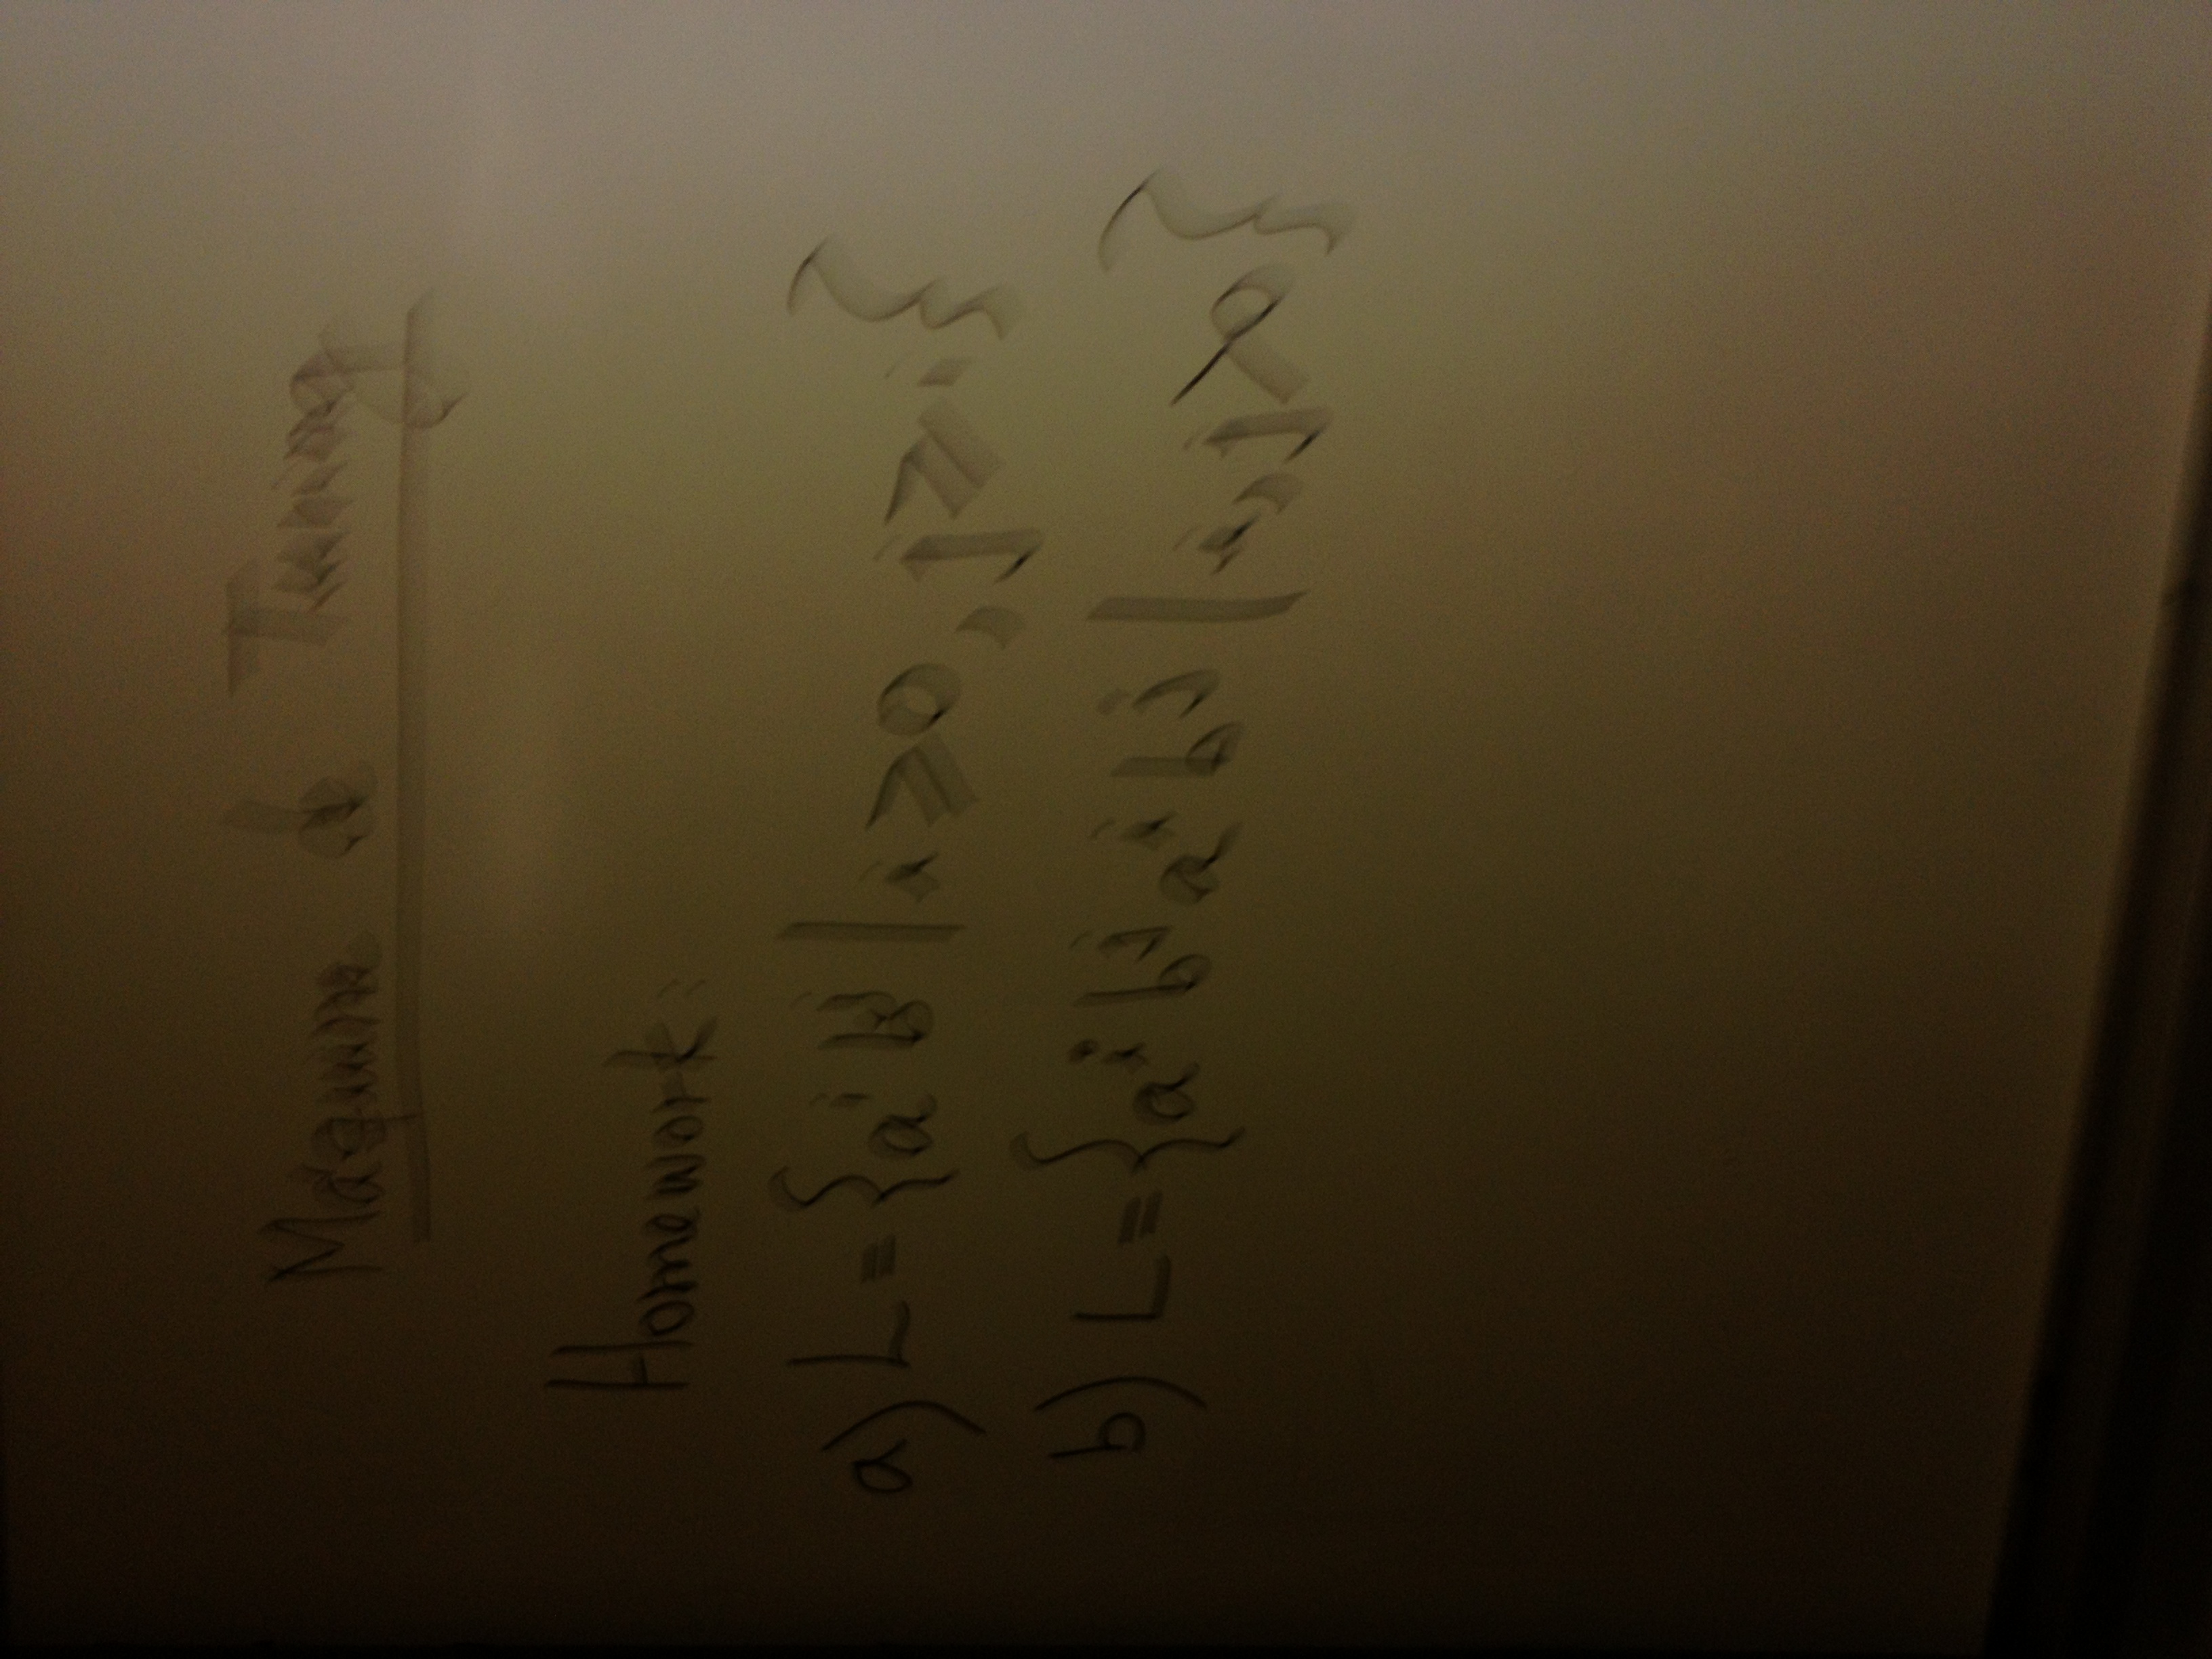 Máquina de Turing
Homework:
a) L = {aⁱ bʲ | i ≥ 0, j ≥ i}
b) L = {aⁱ bʲ aⁱ bʲ | i, j > 0}